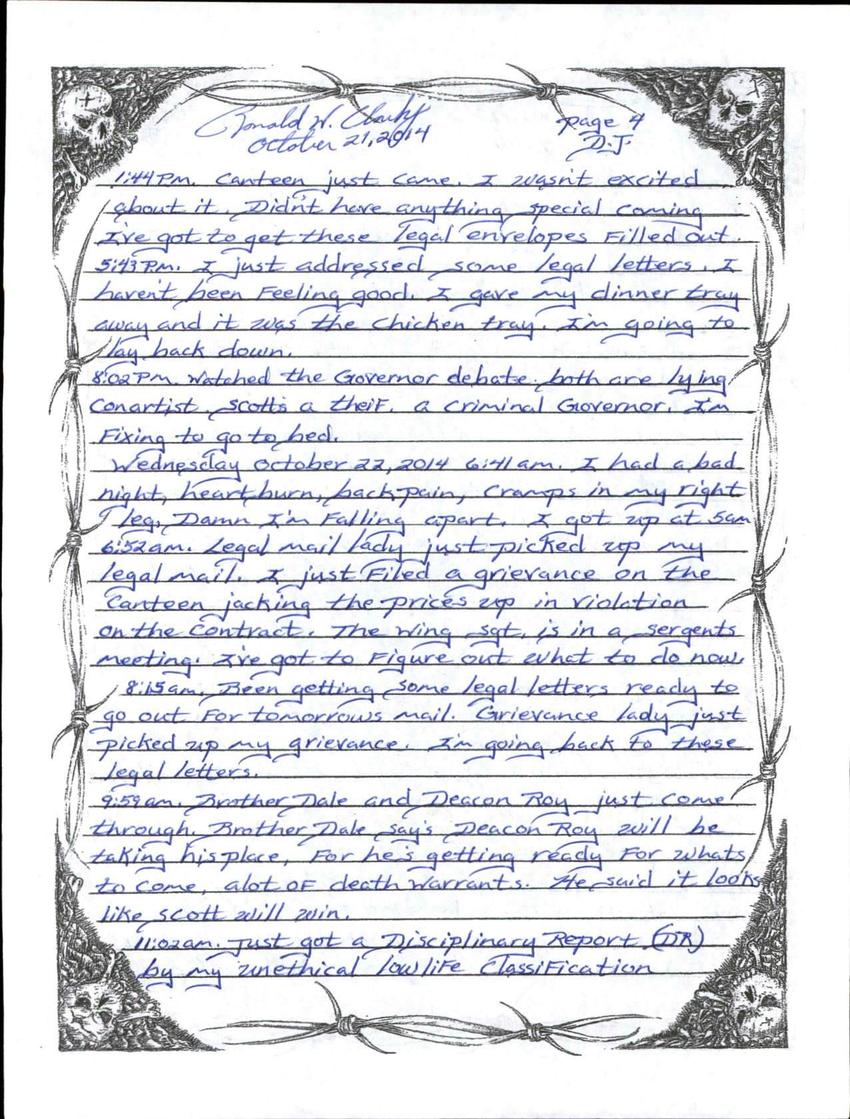 Ronald W. Clark Jr
October 21, 2014
page 4
D.J.
1:44 PM. Canteen just came. I wasn't excited
about it. Didn't have anything special coming
I've got to get these legal envelopes Filled out.
5:43 PM. I just addressed some legal letters. I
haven't been Feeling good. I gave my dinner tray
away and it was the chicken tray. I'm going to
lay back down.
8:02 PM. Watched the Governor debate both are lying
Conartist. Scott's a theiF. a criminal Governor. I'm
Fixing to go to bed.
Wednesday October 22, 2014 6:41 am. I had a bad
night, heart burn, back pain, Cramps in my right
leg, Damn I'm Falling apart. I got up at 5am
6:52am. Legal mail lady just picked up my
legal mail. I just Filed a grievance on the
Canteen jacking the prices up in violation
on the Contract. The wing sgt. is in a sergents
meeting. I've got to Figure out what to do now.
8:15am. Been getting some legal letters ready to
go out For tomorrows mail. Grievance lady just
picked up my grievance. I'm going back to these
legal letters.
9:59am. Brother Dale and Deacon Roy just come
through. Brother Dale say's Deacon Roy will be
taking his place, For he's getting ready For whats
to come, alot oF death warrants. He said it looks
like Scott will win.
11:02am. Just got a Disciplinary Report (DR)
by my unethical lowliFe ClassiFication